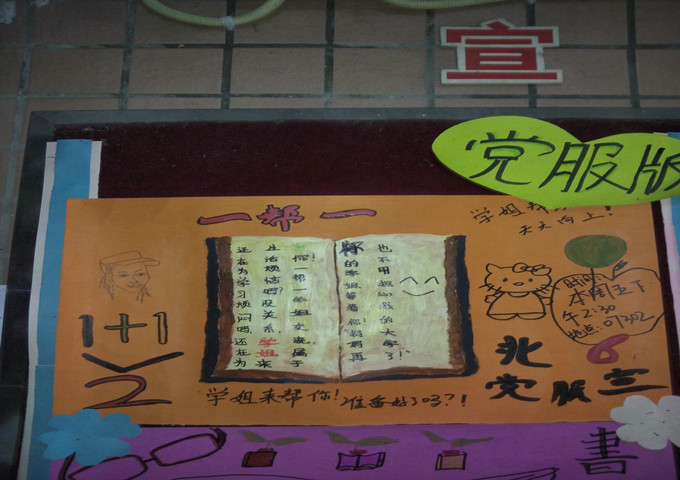 宣
党服版
一帮一
学姐
天天向上！
还在为学习烦闷吗，还在为
生活烦恼吗？没关系，学姐来
你！一帮一学姐交流属于
你的学姐等着你！妈妈再
也不用担心我的大学了！
时间：
本周五下
午2:30
地点：01302
1+1
2
北6
党服宣
学姐来帮你！准备好了吗？！
書